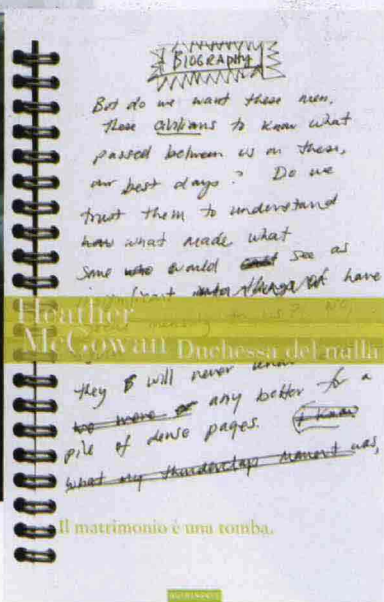 BIOGRAPHY
But do we want these men,
these civilians to know what
passed between us on these,
our best days? Do we
trust them to understand
how what made what
some who would see as
insignificant have
Heather
McGowan Duchessa del nulla
they will never
we were or any better for a
pile of dense pages. I know
what my thunderclap moment was,
Il matrimonio è una tomba.
NUTRIMENTI